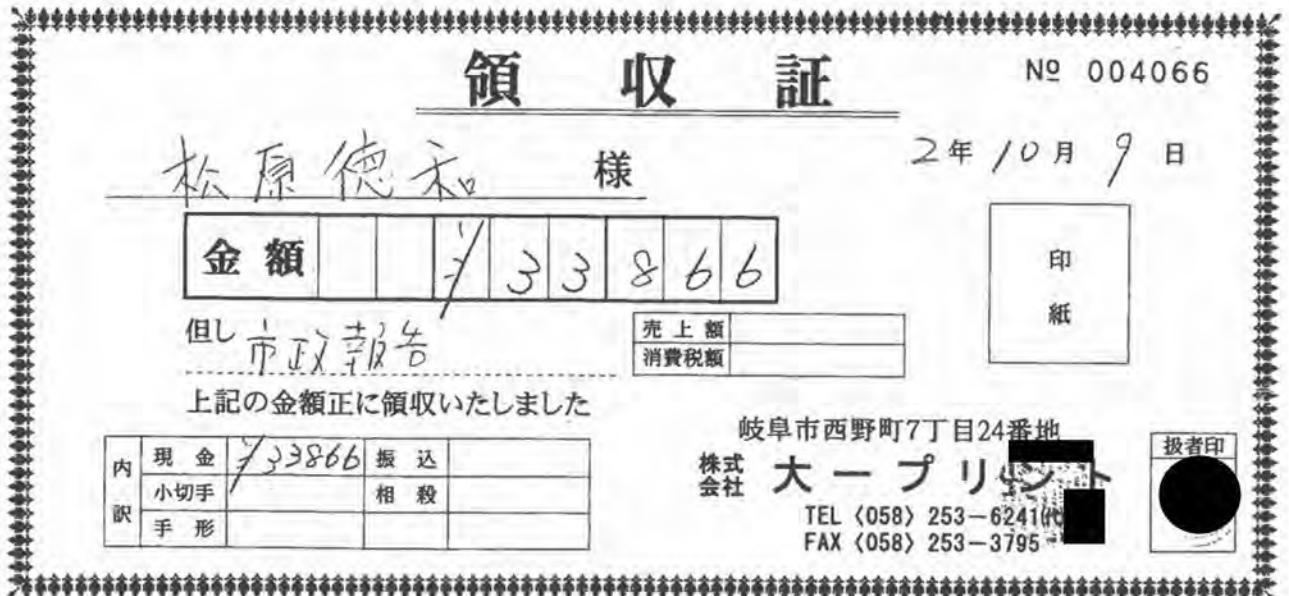 領収証
№ 004066
2年10月9日
松原徳和 様
金額 ¥33866
印紙
但し 市政報告
売上額
消費税額
上記の金額正に領収いたしました
内訳
現金 ¥33866 振込
小切手 相殺
手形
岐阜市西野町7丁目24番地
株式会社 大一プリント
TEL〈058〉253-6241㈹
FAX〈058〉253-3795
扱者印